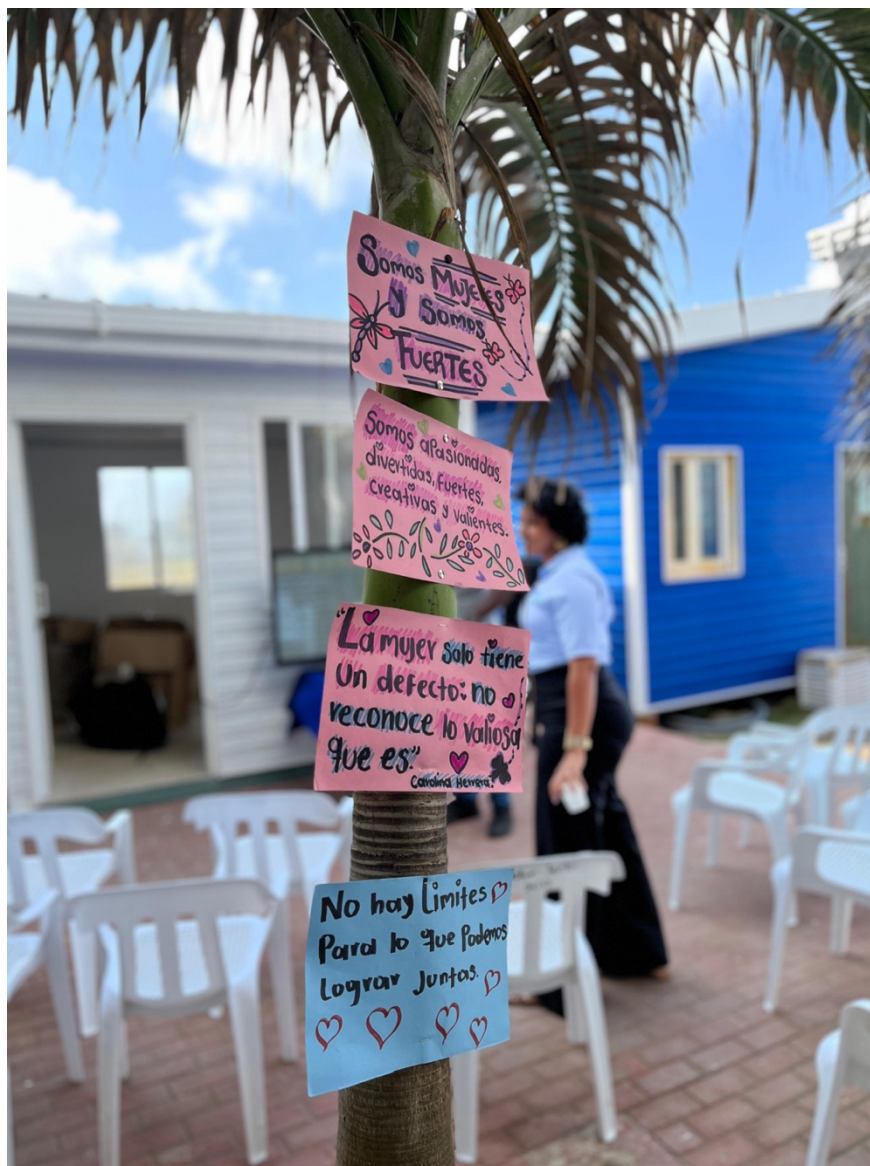 Somos Mujeres
y Somos
FUERTES
Somos apasionadas,
divertidas, Fuertes,
creativas y valientes.
"La mujer solo tiene
Un defecto: no
reconoce lo valiosa
que es."
Carolina Herrera.
No hay Limites
Para lo que Podemos
Lograr Juntas.